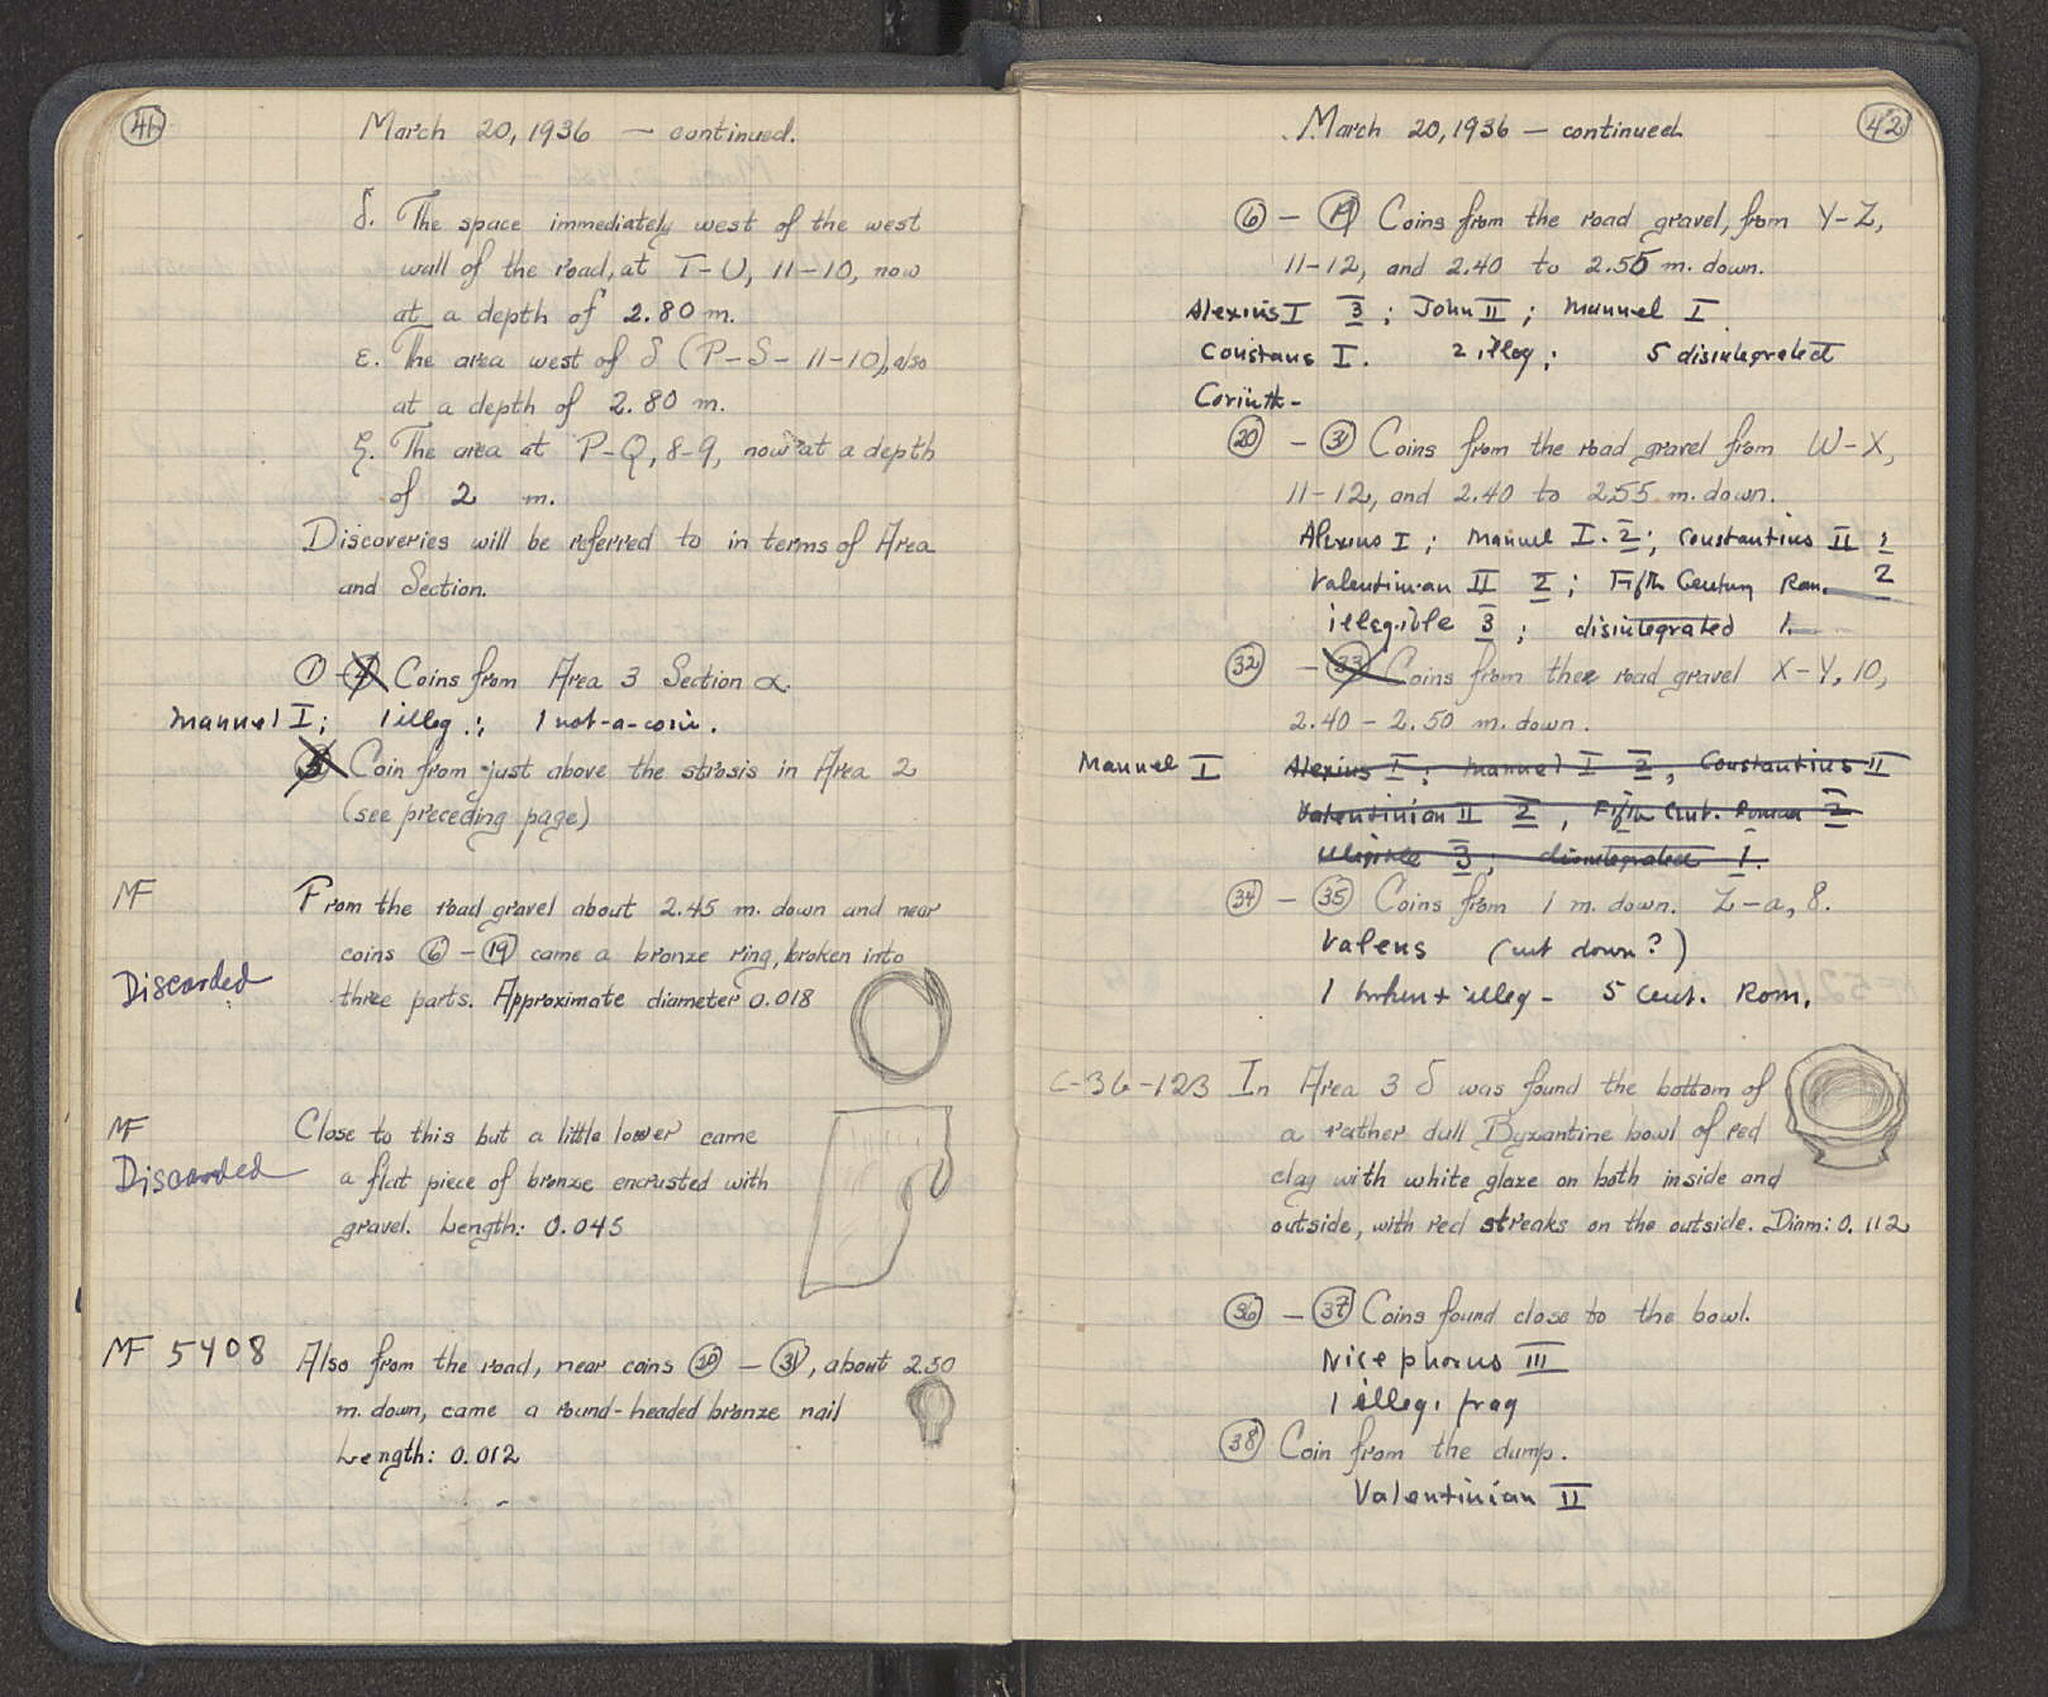 41
March 20, 1936 — continued.
δ. The space immediately west of the west
wall of the road, at T-U, 11-10, now
at a depth of 2.80 m.
ε. The area west of δ (P-S-11-10), also
at a depth of 2.80 m.
ζ. The area at P-Q, 8-9, now at a depth
of 2 m.
Discoveries will be referred to in terms of Area
and Section.
① - ④ Coins from Area 3 Section α.
Manuel I; 1 illeg.; 1 not-a-coin.
⑤ Coin from just above the strosis in Area 2
(see preceding page)
MF From the road gravel about 2.45 m. down and near
coins ⑥ - ⑲ came a bronze ring, broken into
Discarded three parts. Approximate diameter 0.018
MF Close to this but a little lower came
Discarded a flat piece of bronze encrusted with
gravel. Length: 0.045
MF 5408 Also from the road, near coins ⑳ - ㉛, about 2.50
m. down, came a round-headed bronze nail
Length: 0.012
42
March 20, 1936 — continued
⑥ - ⑲ Coins from the road gravel, from Y-Z,
11-12, and 2.40 to 2.55 m. down.
Alexius I 3; John II; Manuel I
Constans I. 2 illeg; 5 disintegrated
Corinth -
⑳ - ㉛ Coins from the road gravel from W-X,
11-12, and 2.40 to 2.55 m. down.
Alexius I; Manuel I. 2; Constantius II;
Valentinian II 2; Fifth Century Rom. 2
illegible 3; disintegrated 1.
㉜ - ㉝ Coins from the road gravel X-Y, 10,
2.40 - 2.50 m. down.
Manuel I Alexius I; Manuel I 2, Constantius II
Valentinian II 2, Fifth Cent. Roman 2
illegible 3; disintegrated 1.
㉞ - ㉟ Coins from 1 m. down. Z-a, 8.
Valens (cut down?)
1 broken + illeg - 5 Cent. Rom.
C-36-123 In Area 3 δ was found the bottom of
a rather dull Byzantine bowl of red
clay with white glaze on both inside and
outside, with red streaks on the outside. Diam: 0.112
㊱ - ㊲ Coins found close to the bowl.
Nicephorus III
1 illeg. frag
㊳ Coin from the dump.
Valentinian II